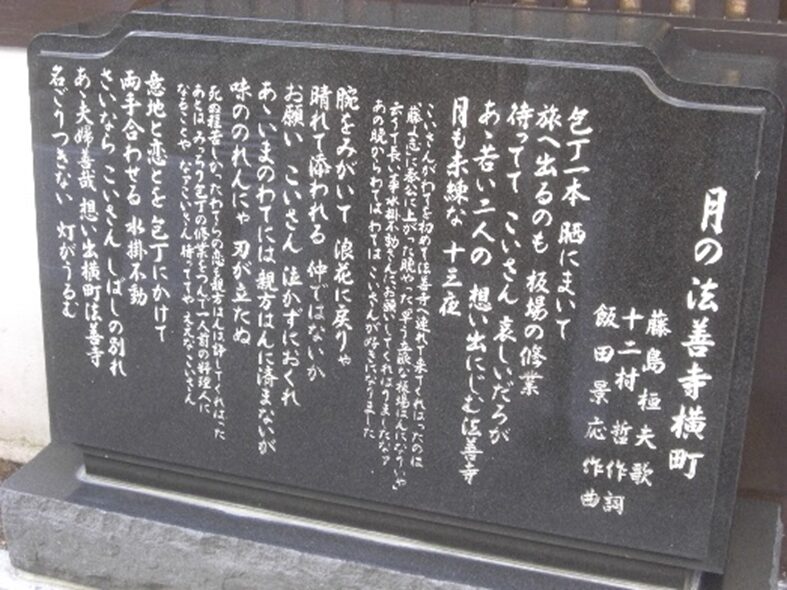 月の法善寺横町
藤島桓夫 歌
十二村 哲 作詞
飯田景応 作曲
包丁一本 晒にまいて
旅へ出るのも 板場の修業
待ってて こいさん 哀しいだろが
あゝ若い二人の 想い出にじむ法善寺
月も未練な 十三夜
こいさんがわてを初めて法善寺へ連れて来てくれはったのは
「藤よ志」に奉公に上がった晩やった「早う立派な板場はんになりいや」
云うて長い事水掛不動さんにお願いしてくれはりましたなァ
あの晩からわてはわてはこいさんが好きになりました
腕をみがいて 浪花に戻りゃ
晴れて添われる 仲ではないか
お願い こいさん 泣かずにおくれ
あゝいまのわてには親方はんに済まないが
味ののれんにゃ 刃が立たぬ
死ぬ程苦しかったわてらの恋も親方はんは許してくれはった
あとはみっちり包丁の修業をつんで一人前の料理人に
なることや なァこいさん 待っててや ええなこいさん
意地と恋とを 包丁にかけて
両手合わせる 水掛不動
さいなら こいさん しばしの別れ
あゝ夫婦善哉 想い出横町法善寺
名ごりつきない 灯がうるむ